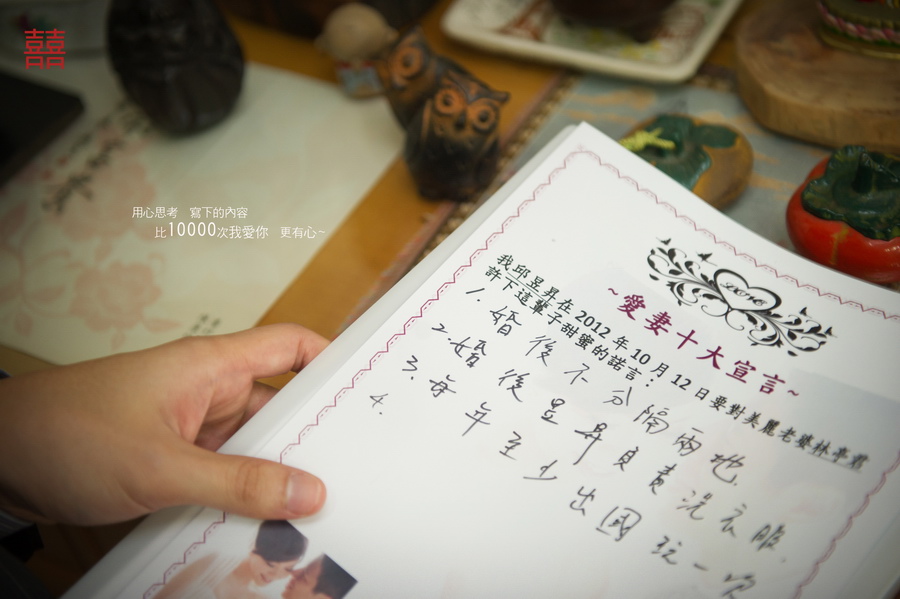 囍
用心思考 寫下的內容
比10000次我愛你 更有心~
LOVE
~愛妻十大宣言~
我邱昱昇在2012年10月12日要對美麗老婆林亭君
許下這輩子甜蜜的諾言：
1. 婚後不分隔兩地.
2. 婚後昱昇負責洗衣服.
3. 每年至少出國玩一次
4.